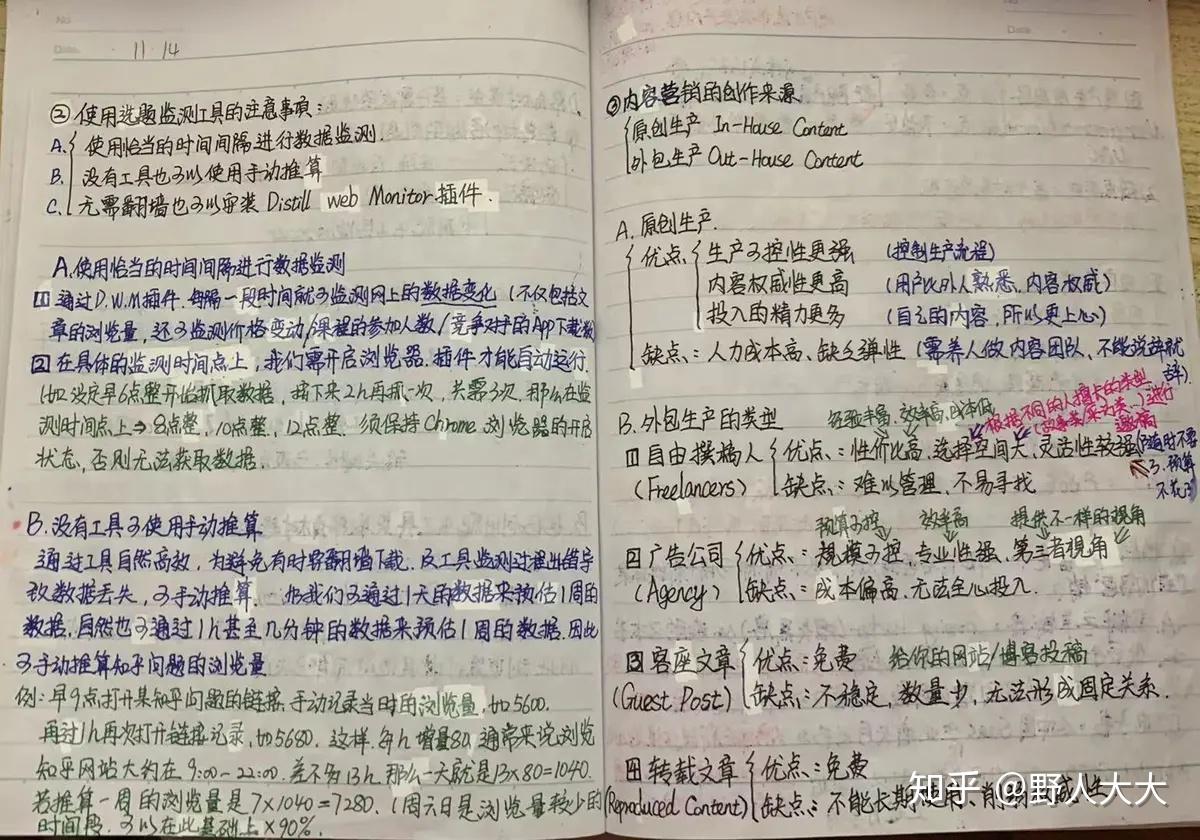 No
Date
11·14
② 使用选题监测工具的注意事项:
A. 使用恰当的时间间隔进行数据监测.
B. 没有工具也可以使用手动推算
C. 无需翻墙也可以安装 Distill web Monitor 插件.
A.使用恰当的时间间隔进行数据监测
1 通过D.W.M插件.每隔一段时间就可监测网上的数据变化 (不仅包括文
章的浏览量,还可监测价格变动/课程的参加人数/竞争对手的App下载数)
2 在具体的监测时间点上,我们需开启浏览器.插件才能自动运行.
如设定早6点整开始抓取数据,接下来2h再抓一次,共需3次.那么在监
测时间点上→8点整,10点整,12点整.须保持Chrome浏览器的开启
状态,否则无法获取数据.
B.没有工具可使用手动推算
通过工具自然高效,为避免有时需翻墙下载.及工具监测过程出错导
致数据丢失,可手动推算.我们可通过1天的数据来预估1周的
数据,自然也可通过1h甚至几分钟的数据来预估1周的数据.因此
可手动推算知乎问题的浏览量
例:早9点打开某知乎问题的链接,手动记录当时的浏览量,如5600.
再过1h再次打开链接记录,如5680.这样.每h增量80.通常来说浏览
知乎网站大约在9:00-22:00.差不多13h.那么一天就是13×80=1040.
若推算一周的浏览量是7×1040=7280.(周六日是浏览量较少的
时间段.可以在此基础上×90%.
Date
③内容营销的创作来源
原创生产 In-House Content
外包生产 Out-House Content
A.原创生产.
优点 生产可控性更强 (控制生产流程)
内容权威性更高 (用户比外人熟悉、内容权威)
投入的精力更多 (自己的内容,所以更上心)
缺点:人力成本高、缺乏弹性 (需养人做内容团队,不能说辞就
辞)
B.外包生产的类型
经验丰富、效率高,成本低
根据不同的人擅长的类型
(故事类、采访类、)进行
邀稿
1 自由撰稿人 优点:性价比高,选择空间大,灵活性较强
(Freelancers) 缺点:难以管理、不易寻找
预算
预算可控 效率高 提供不一样的视角
2 广告公司 优点:规模可控,专业性强、第三者视角
(Agency) 缺点:成本偏高.无法全心投入.
3 客座文章 优点:免费 给你的网站/博客投稿
(Guest Post) 缺点:不稳定,数量少,无法形成固定关系.
4 转载文章 优点:免费
(Reproduced Content) 缺点:不能长期使用、
知乎 @野人大大